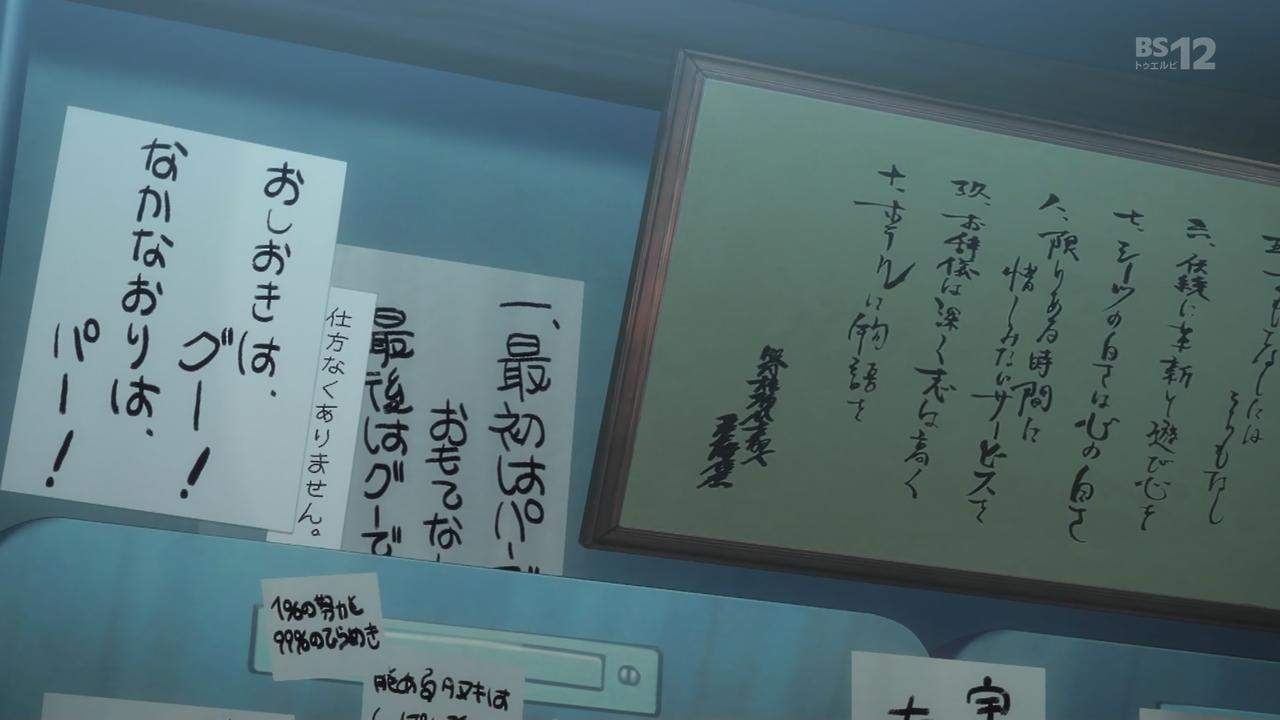 BS12
トゥエルビ
おしおきは、
グー！
なかなおりは、
パー！
仕方なくありません。
一、最初はパーで
おもてな
最後はグーで
六、伝統に革新と遊び心を
七、シーツの白さは心の白さ
八、限りある時間に
惜しみないサービスを
玖、お辞儀は深く志は高く
十、ホテルに物語を
1%の努力と
99%のひらめき
能あるタヌキは
宇